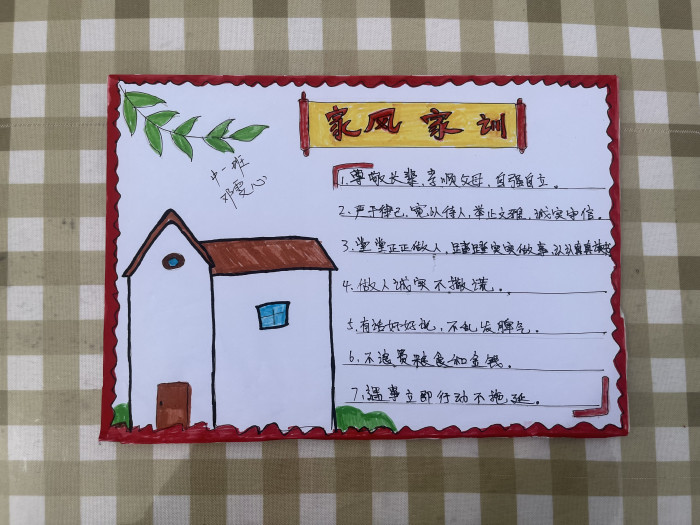 家风家训
中一班
邓雯心
1.尊敬长辈,孝顺父母,自强自立。
2.严于律己,宽以待人,举止文雅,诚实守信。
3.堂堂正正做人,踏踏实实做事,认认真真读书
4.做人诚实不撒谎。
5.有话好好说,不乱发脾气。
6.不浪费粮食和金钱。
7.遇事立即行动不拖延。